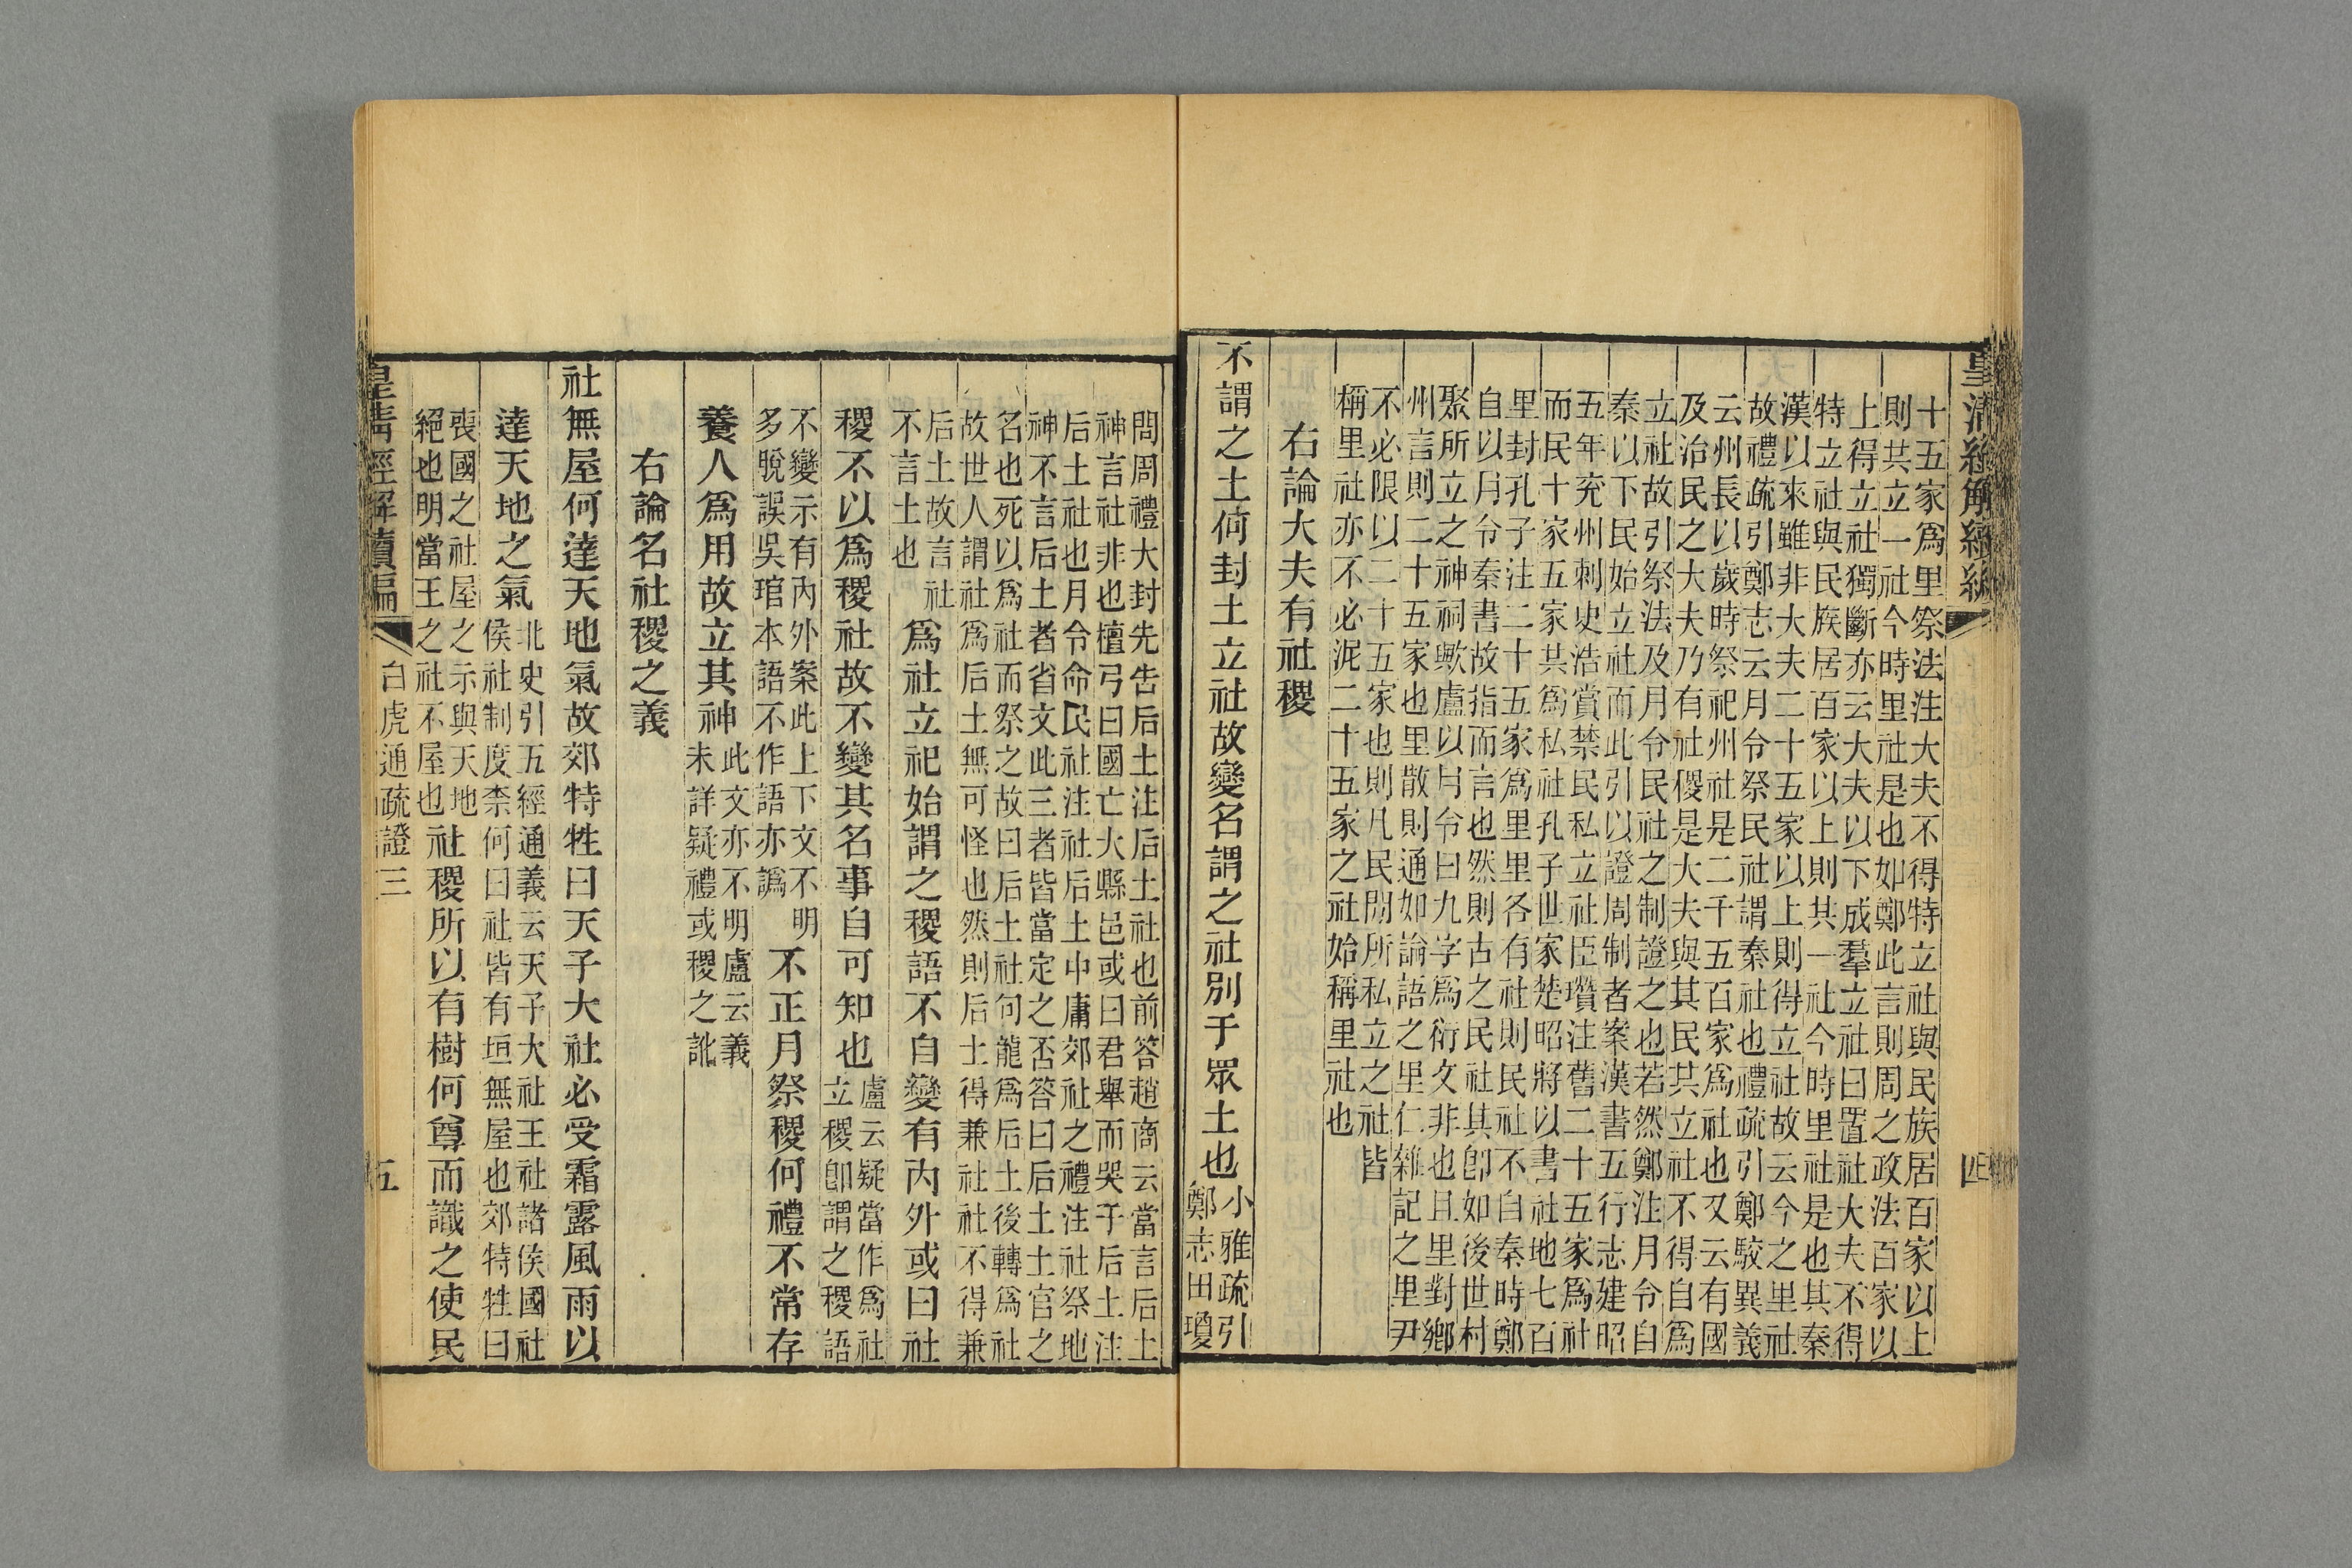 十五家爲里祭法注大夫不得特立社與民族居百家以上
則共立一社今時里社是也如鄭此言則周之政法百家以
上得立社獨斷亦云大夫以下成羣立社曰置社大夫不得
特立社與民族居百家以上則共一社今時里社是也其秦
漢以來雖非大夫二十五家以上則得立社故云今之里社
故禮疏引鄭志云月令祭民社謂秦社也禮疏引鄭駮異義
云州長以歲時祭祀州社是二千五百家爲社也又云有國
及治民之大夫乃有社稷是大夫與其民其立社不得自爲
立社故引祭法及月令民社之制證之也若然鄭注月令自
秦以下民始立社而此引以證周制者案漢書五行志建昭
五年兖州刺史浩賞禁民私立社臣瓚注舊二十五家爲社
而民十家五家共爲私社孔子世家楚昭將以書社地七百
里封孔子注二十五家爲里里各有社則民社不自秦時鄭
自以月令秦書故指而言也然則古之民社其卽如後世村
聚所立之神祠歟盧以月令曰九字爲衍文非也且里對鄉
州言則二十五家也里散則通如論語之里仁雜記之里尹
不必限以二十五家也則凡民閒所私立之社皆
稱里社亦不必泥二十五家之社始稱里社也
右論大夫有社稷
不謂之土何封土立社故變名謂之社別于眾土也小雅疏引
鄭志田瓊
問周禮大封先告后土注后土社也前答趙商云當言后土
神言社非也檀弓曰國亡大縣邑或曰君舉而哭于后土注
后土社也月令命民社注社后土中庸郊社之禮注社祭地
神不言后土者省文此三者皆當定之否答曰后土土官之
名也死以爲社而祭之故曰后土社句龍爲后土後轉爲社
故世人謂社爲后土無可怪也然則后土得兼社社不得兼
后土故言社
不言土也
爲社立祀始謂之稷語不自變有內外或曰社
稷不以爲稷社故不變其名事自可知也盧云疑當作爲社
立稷卽謂之稷語
不變示有內外案此上下文不明
多脫誤吳琯本語不作語亦譌
不正月祭稷何禮不常存
養人爲用故立其神此文亦不明盧云義
未詳疑禮或稷之訛
右論名社稷之義
社無屋何達天地氣故郊特牲曰天子大社必受霜露風雨以
達天地之氣北史引五經通義云天子大社王社諸侯國社
侯社制度柰何曰社皆有垣無屋也郊特牲曰
喪國之社屋之示與天地
絕也明當王之社不屋也
社稷所以有樹何尊而識之使民
皇清經解續編
白虎通疏證三
五